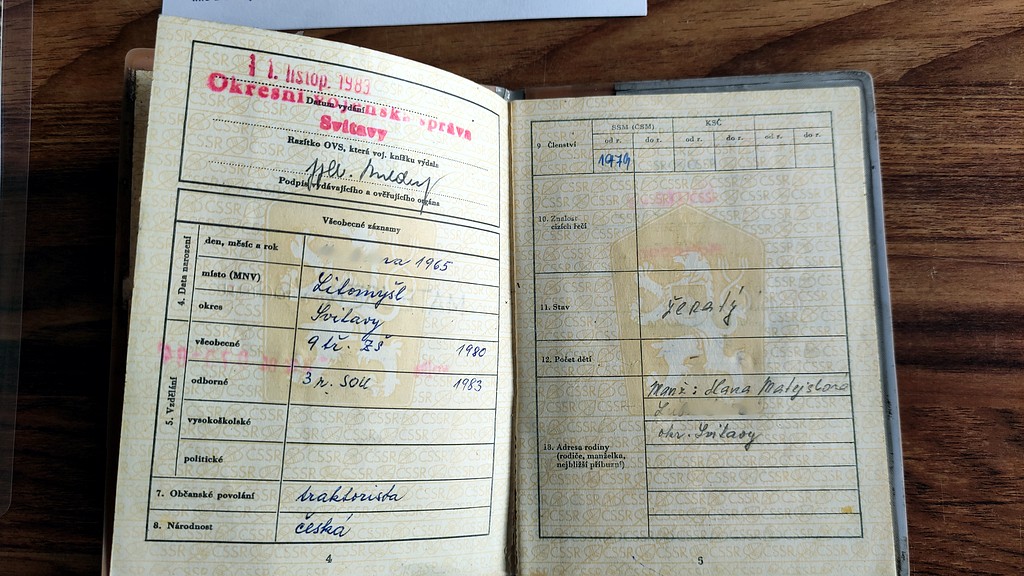 11. listop. 1983
Datum vydání
Okresní vojenská správa
Svitavy
Razítko OVS, která voj. knížku vydala
Podpis vydávajícího a ověřujícího orgánu
Všeobecné záznamy
4. Data narození
den, měsíc a rok 1965
místo (MNV) Litomyšl
okres Svitavy
5. Vzdělání
všeobecné 9 tř. ZŠ 1980
odborné 3 r. SOU 1983
vysokoškolské
politické
7. Občanské povolání traktorista
8. Národnost česká
4
SSM (ČSM) KSČ
9 Členství od r. do r. od r. do r. od r. do r.
1979
10. Znalost
cizích řečí
11. Stav ženatý
12. Počet dětí -
Manž: Hana Matejsková
okr. Svitavy
13. Adresa rodiny
(rodiče, manželka,
nejbližší příbuzní)
5